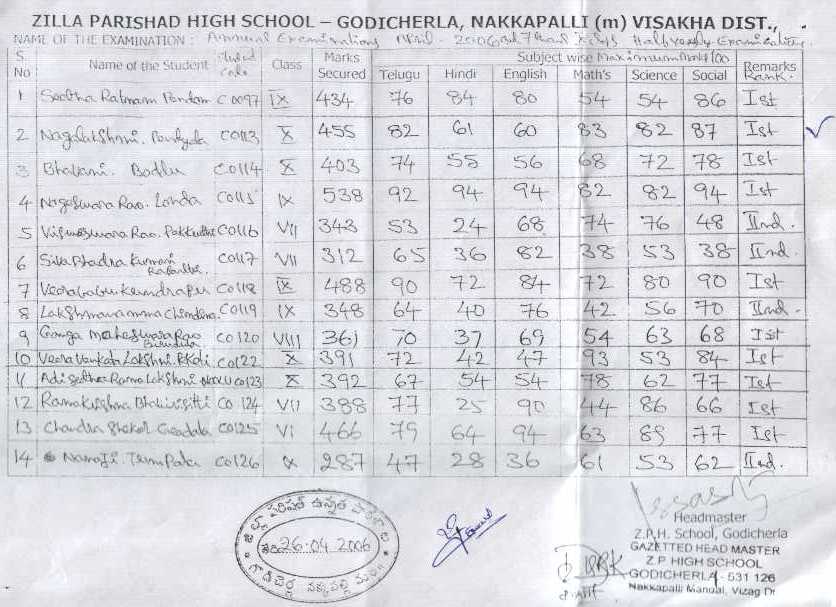 ZILLA PARISHAD HIGH SCHOOL – GODICHERLA, NAKKAPALLI (m) VISAKHA DIST.,
NAME OF THE EXAMINATION : Annual Examinations April - 2006 Half yearly Examination
S. No Name of the Student code Class Marks Secured Subject wise Maximum mark 100 Remarks Rank.
Telugu Hindi English Math's Science Social
1 Seetha Ratnam Pandam C0097 IX 434 76 84 80 54 54 86 Ist
2 Nagalakshmi. C0113 X 455 82 61 60 83 82 87 Ist
3 Bhavani. Boddu C0114 X 403 74 55 56 68 72 78 Ist
4 Nageswara Rao. Landa C0115 IX 538 92 94 94 82 82 94 Ist
5 Visweswara Rao. C0116 VII 343 53 24 68 74 76 48 IInd.
6 Siva Bhadra Kumari C0117 VII 312 65 36 82 38 53 38 IInd.
7 Veerababu C0118 IX 488 90 72 84 72 80 90 Ist
8 C0119 IX 348 64 40 76 42 56 70 IInd.
9 Ganga Maheswara Rao C0120 VIII 361 70 37 69 54 63 68 Ist
10 Veera Venkata Lakshmi C0122 X 391 72 42 47 93 53 84 Ist
11 Adi Seetha Rama Lakshmi C0123 X 392 67 54 54 78 62 77 Ist
12 Ramakrishna C0124 VII 388 77 25 90 44 86 66 Ist
13 Chandra Shekar C0125 VI 466 79 64 94 63 89 77 Ist
14 Nanaji. C0126 IX 287 47 28 36 61 53 62 IInd.
జిల్లా పరిషత్ ఉన్నత పాఠశాల
26-04 2006
గొడిచర్ల నక్కపల్లి
Headmaster
Z.P.H. School, Godicherla
GAZETTED HEAD MASTER
Z.P HIGH SCHOOL
GODICHERLA - 531 126
Nakkapalli Mandal, Vizag Dt